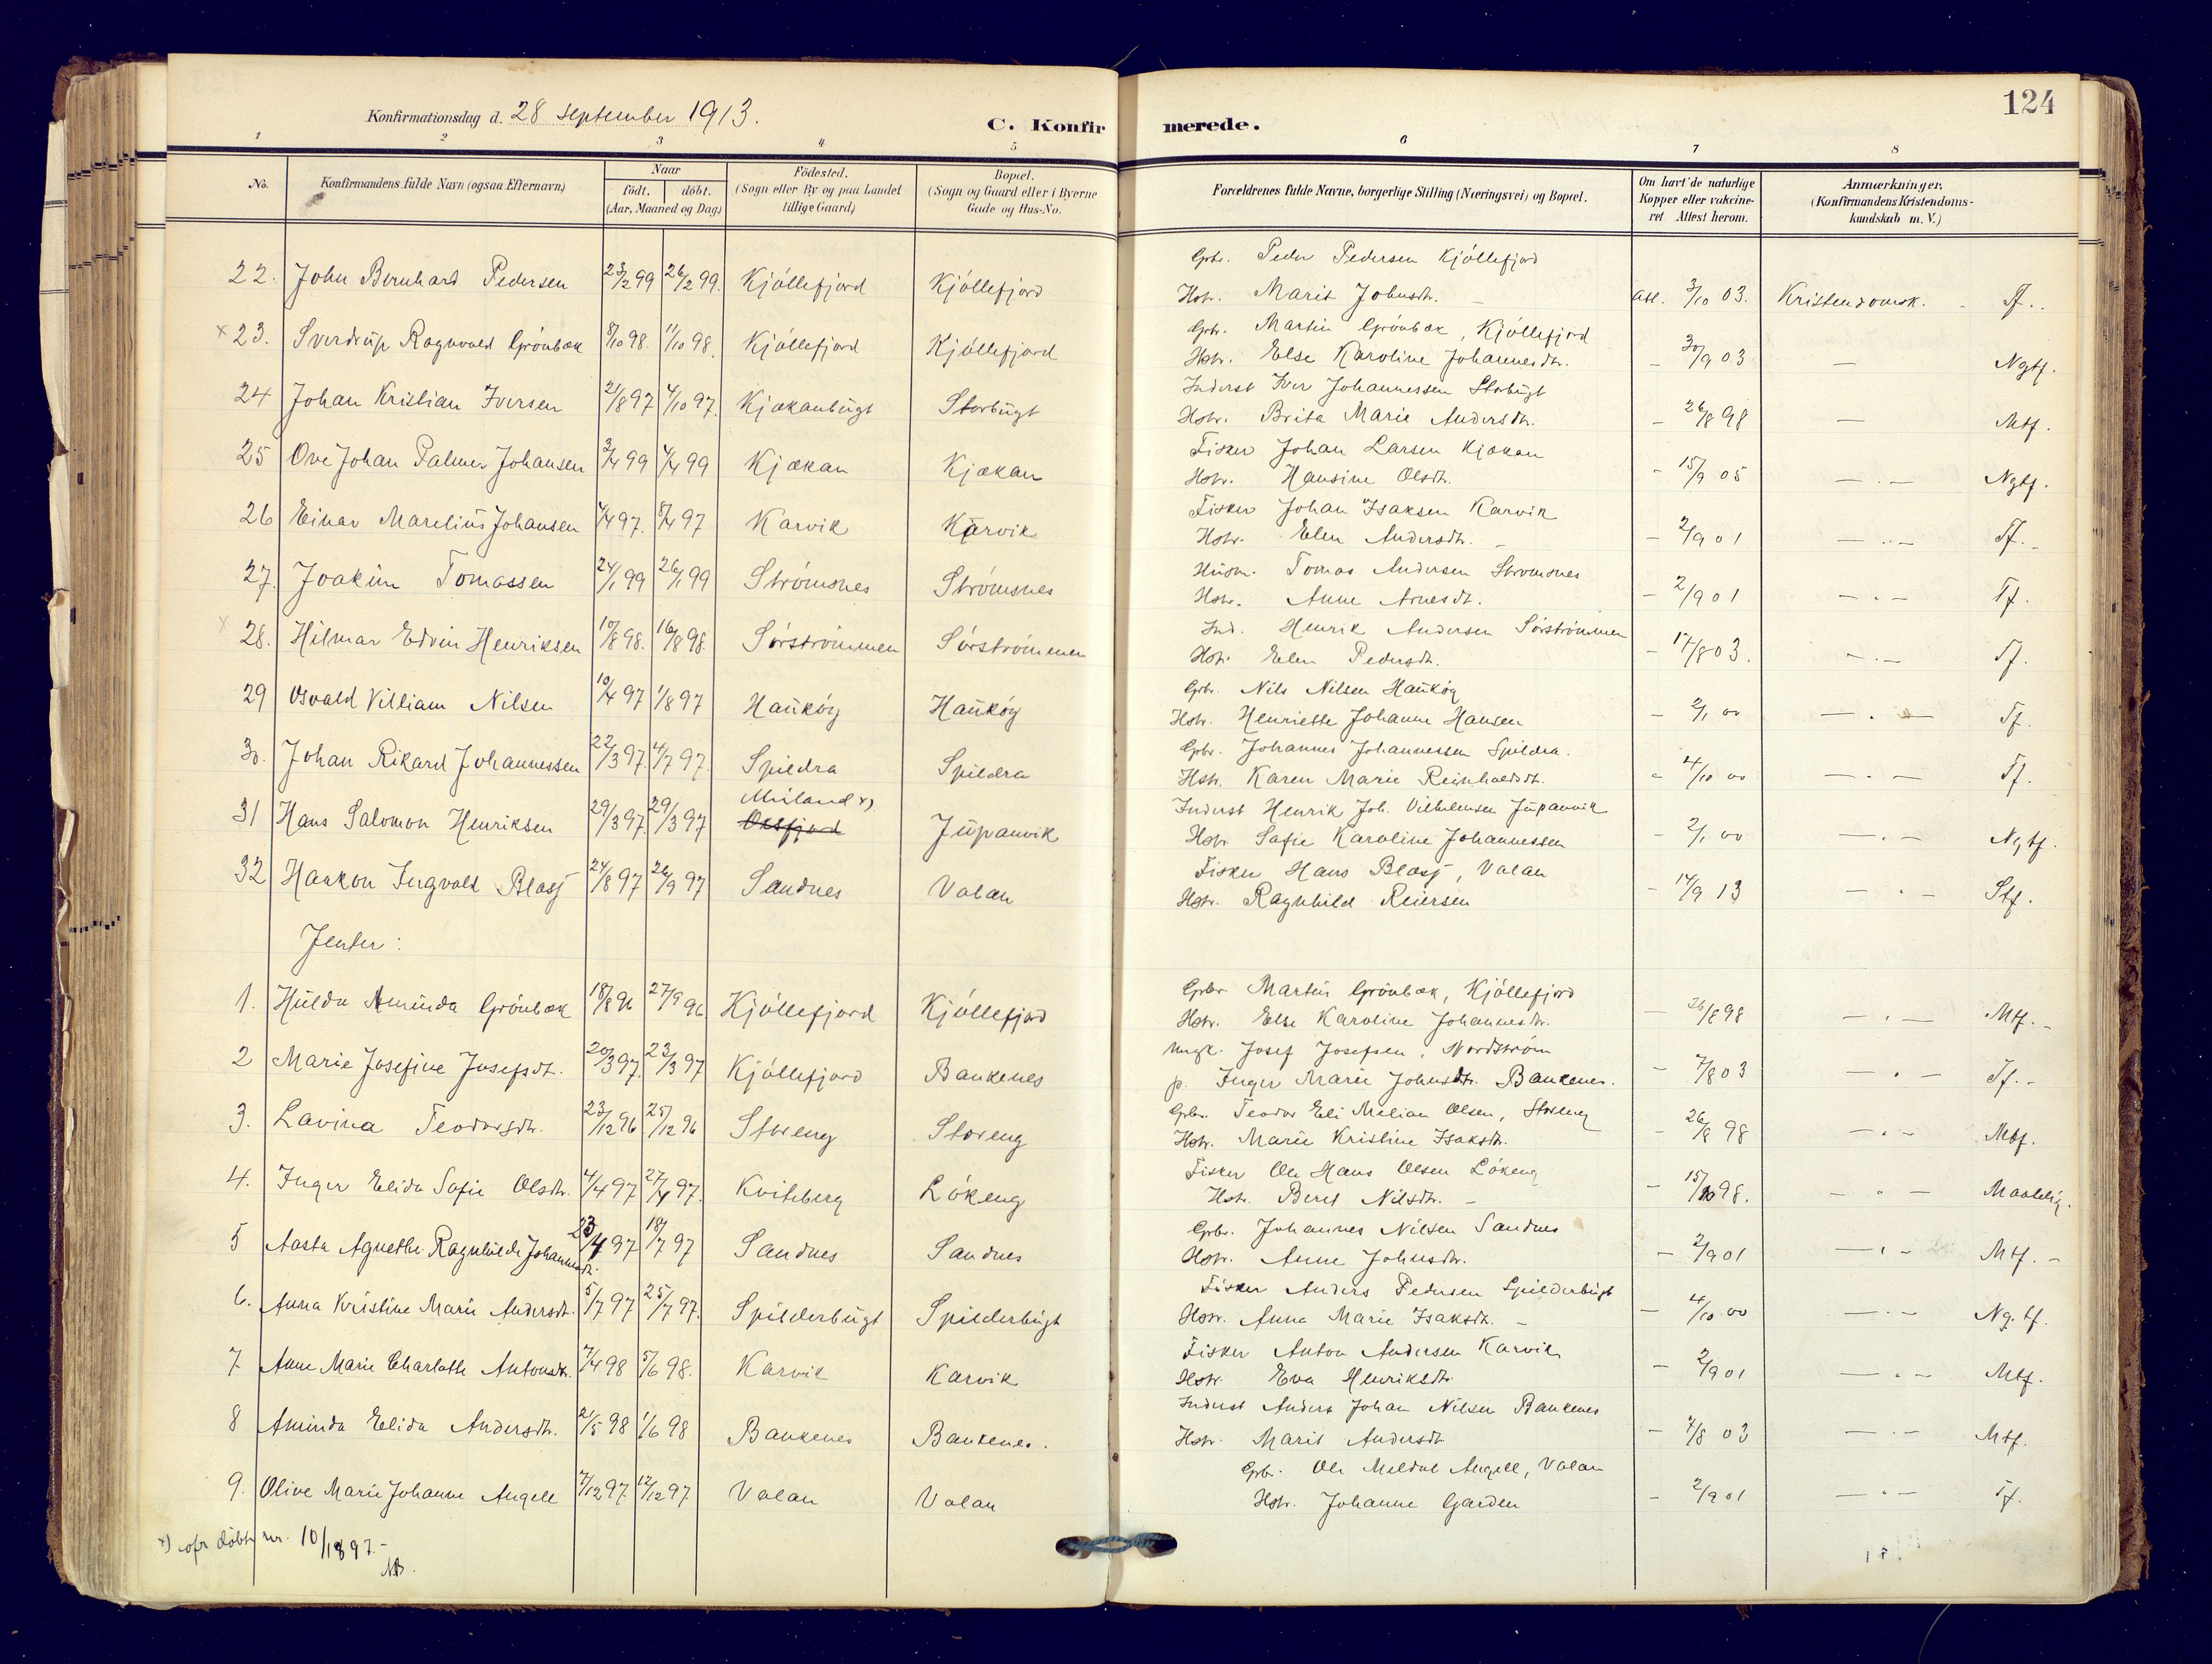 Konfirmationsdag d. 28 september 1913.
C. Konfirmerede.
124
1 2 3 4 5 6 7 8
No. Konfirmandens fulde Navn (ogsaa Efternavn) Naar født. døbt. (Aar, Maaned og Dag) Fødested. (Sogn eller By og paa Landet tillige Gaard) Bopæl. (Sogn og Gaard eller i Byerne Gade og Hus-No. Forældrenes fulde Navne, borgerlige Stilling (Næringsvei) og Bopæl. Om havt de naturlige Kopper eller vakcineret Attest herom. Anmærkninger, (Konfirmandens Kristendomskundskab m. V.)
Gbr. Peder Pedersen Kjöllefjord
22. John Bernhard Pedersen 23/2 99 26/2 99. Kjöllefjord Kjöllefjord Hstr. Marit Johnsdtr. — att. 3/10 03. Kristendomsk. - Tf.
Gbr. Martin Grönbæk, Kjöllefjord
x 23. Sverdrup Ragnvald Grönbæk 8/10 98. 11/10 98. Kjöllefjord Kjöllefjord Hstr. Else Karoline Johannesdtr. - 30/9 03 — Ngtf.
Inderst Iver Johannessen Storbugt
24 Johan Kristian Iversen 21/8 97 4/10 97. Kjækanbugt Storbugt Hstr. Brita Marie Andersdtr. - 26/8 98 — Mtf.
Fisker Johan Larsen Kjækan
25 Ove Johan Palmer Johansen 3/4 99 4/4 99 Kjækan Kjækan Hstr. Hansine Olsdtr. - 15/9 05 — . — Ngtf.
Fisker Johan Isaksen Karvik
26 Einar Marelius Johansen 4/4 97. 8/4 97 Karvik Karvik Hstr. Elen Andersdtr. — - 2/9 01 — .. — Tf. -
Husm. Tomas Andersen Strömsnes
27. Joakim Tomassen 24/1 99 26/1 99 Strömsnes Strömsnes Hstr. Anne Arnesdt. - 2/9 01 — . — Tf.
Ind. Henrik Andersen Sörströmmen
x 28. Hilmar Edvin Henriksen 10/8 98. 16/8 98. Sörströmmen Sörströmmen Hstr. Elen Pedersdt. - 17/8 03. — . — Tf.
Gbr. Nils Nilsen Hauköy
29 Osvald Villiam Nilsen 10/4 97 1/8 97 Hauköy Hauköy Hstr. Henriette Johanne Hansen - 2/1 00 — . — Tf.
Gbr. Johannes Johannessen Spildra.
30. Johan Rikard Johannessen 22/3 97. 4/7 97. Spildra Spildra Hstr. Karen Marie Reinholdsdt. - 4/10 00 — . — Tf.
Muland x) Inderst Henrik Joh. Vilhelmsen Jupanvik
31 Hans Salomon Henriksen 29/3 97. 29/3 97 Oksfjord Jupanvik Hstr. Sofie Karoline Johannessen - 2/1 00 — . — Ngtf.
Fisker Hans Blæsj, Valan
32 Haakon Ingvald Blæsj 24/8 97 26/9 97 Sandnes Valan Hstr. Ragnhild Reiersen - 14/9 13 — . - Stf.
Jenter:
Gbr. Martin Grönbæk, Kjöllefjord
1. Hulda Aminda Grönbæk 18/8 96 27/9 96 Kjöllefjord Kjöllefjord Hstr. Else Karoline Johannesdtr. — 26/8 98 — . — Mtf. -
Ungk. Josef Josefsen, Nordström
2 Marie Josefine Josefsdt. 20/3 97. 23/3 97 Kjöllefjord Bankenes p. Inger Marie Johnsdtr. Bankenes. - 7/8 03 — . — Tf. -
Gbr. Teodor Eli Melian Olsen, Storeng
3. Lavina Teodorsdtr. 23/12 96 25/12 96 Storeng Storeng Hstr. Marie Kristine Isaksdtr. - 26/8 98 — . — Mtf.
Fisker Ole Hans Olsen Lökeng
4. Inger Elida Sofie Olsdtr. 4/4 97 27/4 97. Kviteberg Lökeng Hstr. Beret Nilsdtr. — - 15/10 98. — . — Maadelig.
Gbr. Johannes Nilsen Sandnes
5 Aasta Agnethe Ragnhilde Johannesdtr. 23/4 97 18/7 97 Sandnes Sandnes Hstr. Anne Johnsdtr. - 2/9 01 — . - Mtf. -
Fisker Anders Pedersen Spilderbugt
6. Anna Kristine Marie Andersdt. 5/7 97 25/7 97. Spilderbugt Spilderbugt Hstr. Anna Marie Isaksdt. — - 4/10 00 — . — Ng. tf.
Fisker Anton Andersen Karvik
7 Anne Marie Charlotte Antonsdtr. 7/4 98 5/6 98. Karvik Karvik Hstr. Eva Henriksdtr. - 2/9 01 — . — Mtf.
Inderst Anders Johan Nilsen Bankenes
8 Aminda Elida Andersdtr. 21/5 98 1/6 98 Bankenes Bankenes. Hstr. Marit Andersdt - 7/8 03 — . — Mtf.
Gbr. Ole Meldal Angell, Valan
9. Olive Marie Johanne Angell 7/12 97. 12/12 97. Valan Valan Hstr. Johanne Garden - 2/9 01 — . — Tf.
x) cfr döbte nr. 10/1897.-